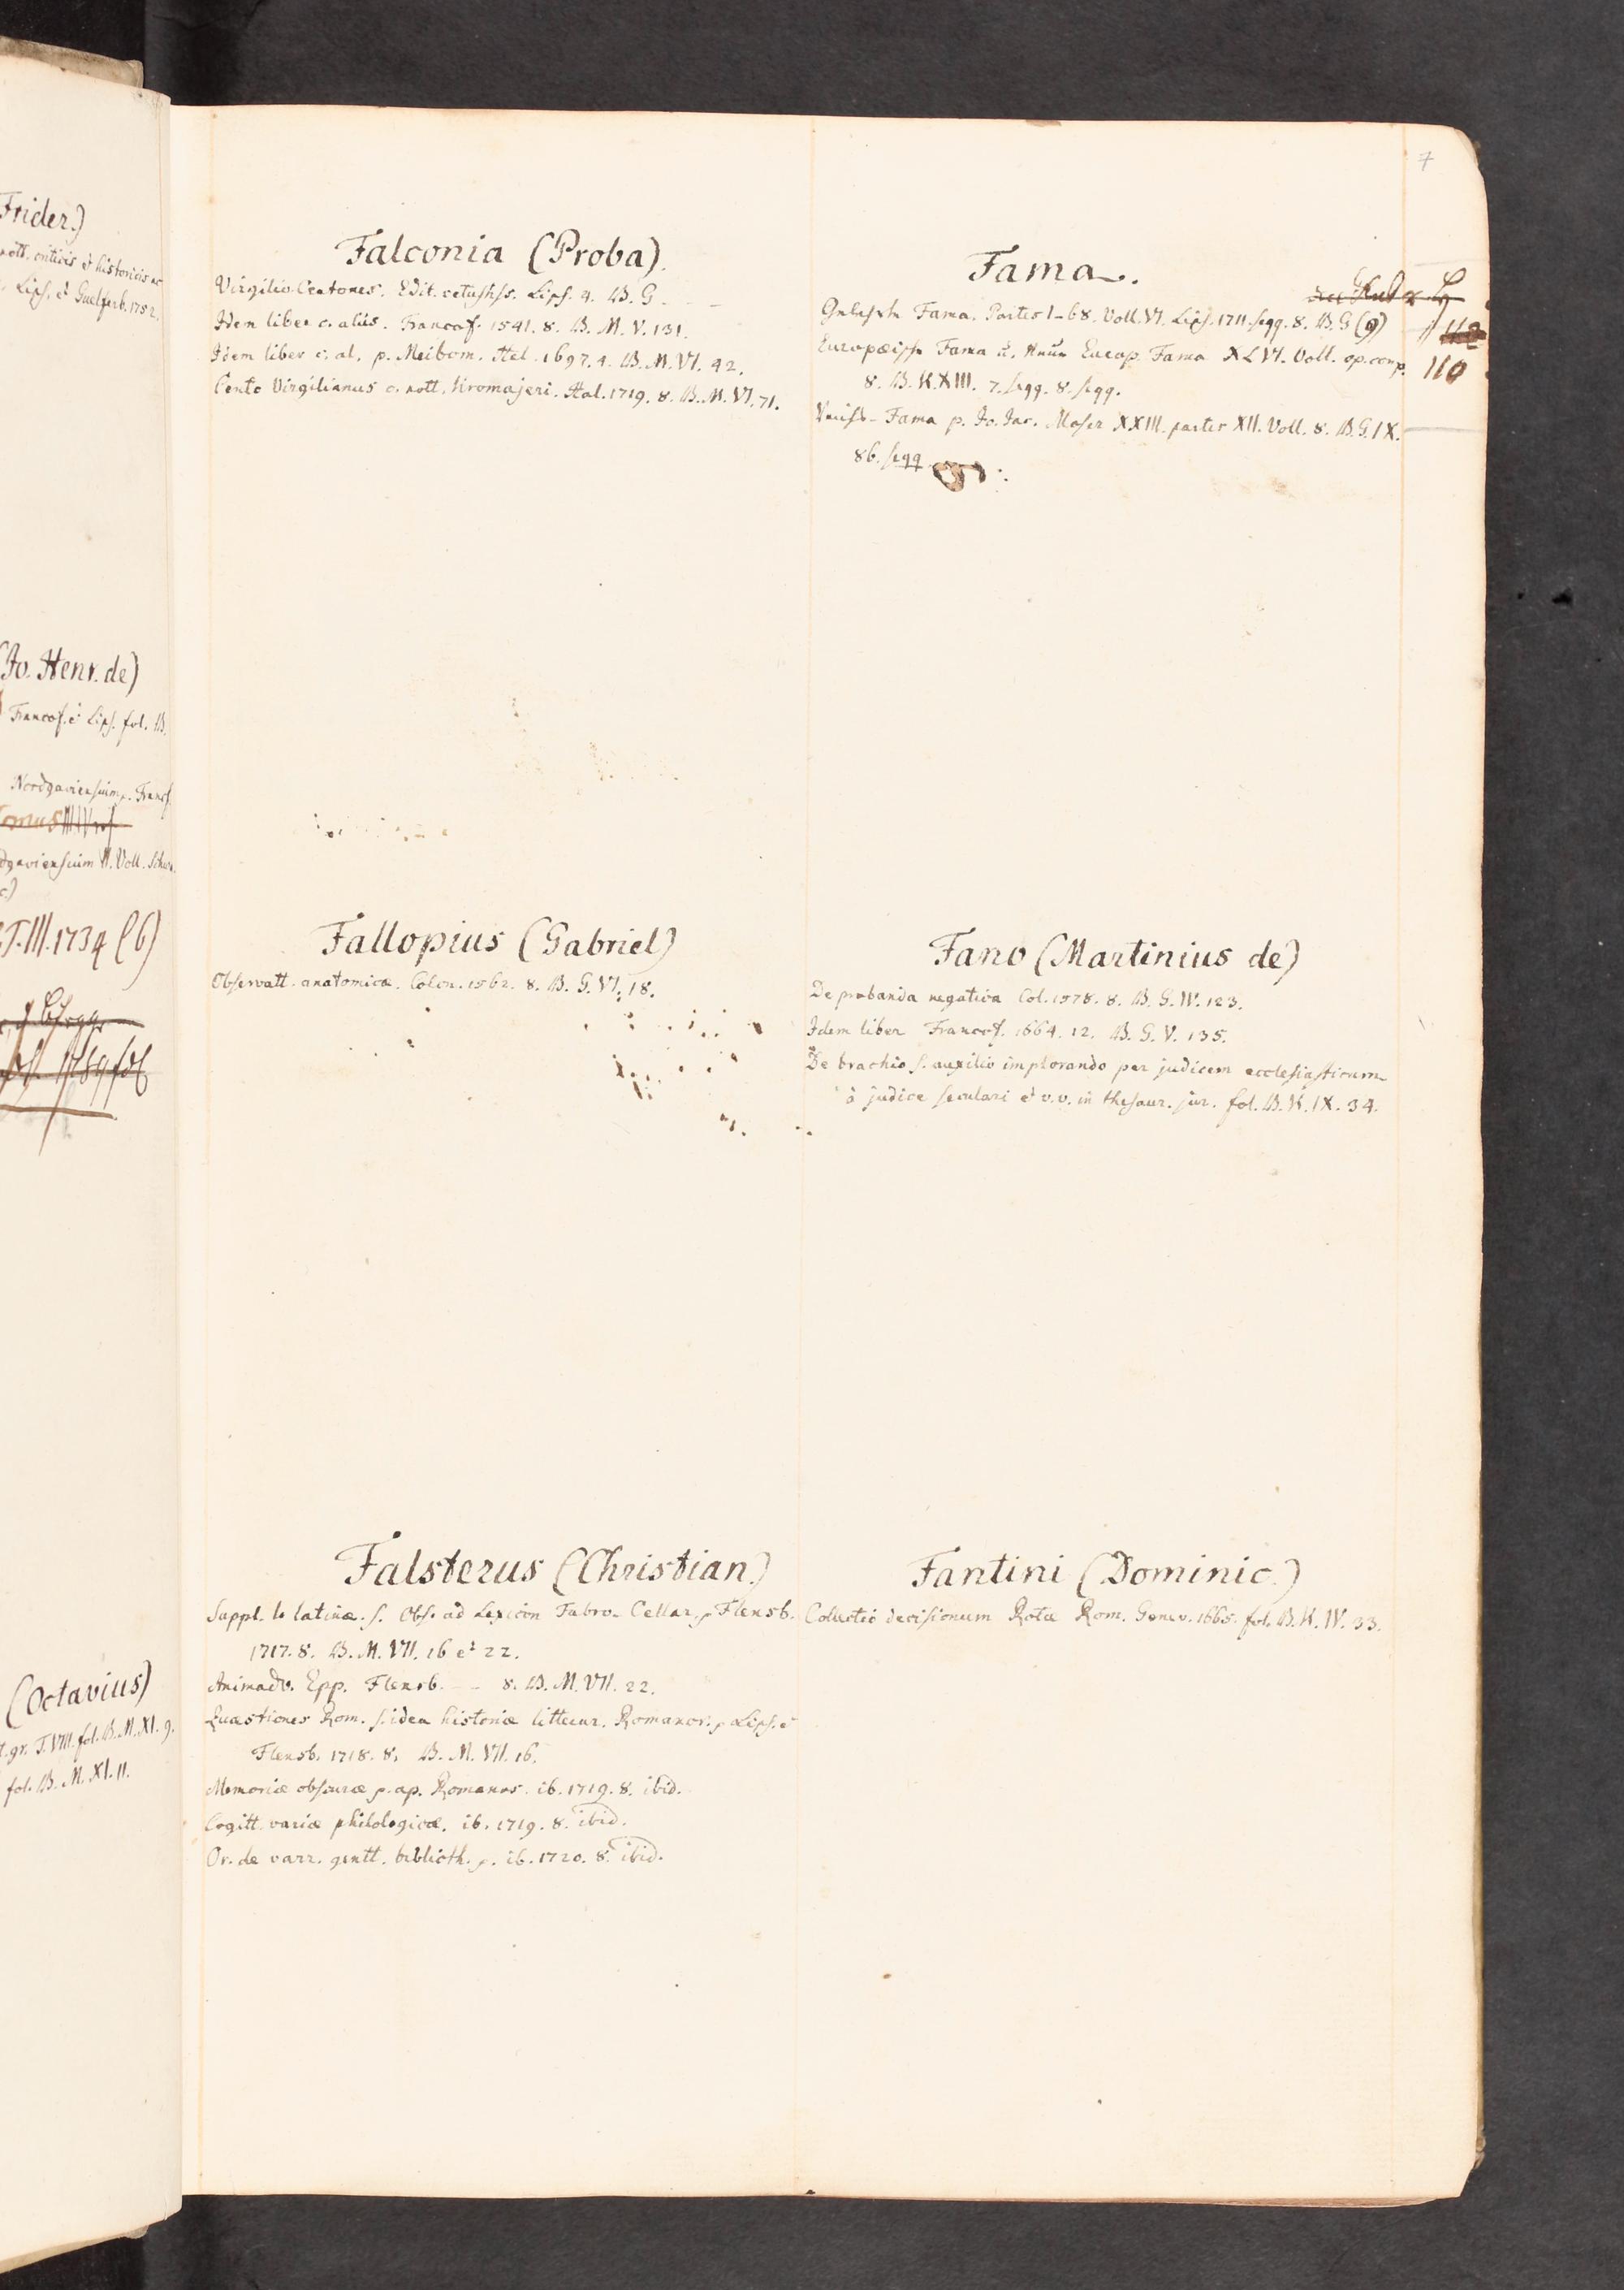 Frider.)
nott. criticis & historicis
Lips. & Guelferb. 1752.
(Jo. Henr. de)
Francof. & Lips. fol. B.
Nordgaviensium p. Francf.
omus III
dgaviensium II. Voll.
T. III. 1734 (6)
(Octavius)
t. gr. T. VIII. fol. B. M. XI. 9.
fol. B. M. XI. 11.
Falconia (Proba).
Virgilio Centones. Edit. vetustiss. Lips. 4. B. G.
Idem liber c. aliis. Francof. 1541. 8. B. M. V. 131.
Idem liber c. al. p. Meibom. Hel. 1697. 4. B. M. VI. 42.
Cento Virgilianus c. nott. Kromajeri. Hal. 1719. 8. B. M. VI. 71.
Fallopius (Gabriel)
Observatt. anatomicæ. Colon. 1562. 8. B. G. VI. 18.
Falsterus (Christian.)
Suppl. l. latinæ. s. Obs. ad Lexicon Fabro-Cellar. p Flensb.
1717. 8. B. M. VII. 16 et 22.
Animadv. Epp. Flensb. — 8. B. M. VII. 22.
Quæstiones Rom. s. idea historiæ litterar. Romanor. p Lips. &
Flensb. 1718. 8. B. M. VII. 16.
Memoriæ obscuræ p. ap. Romanos. ib. 1719. 8. ibid.
Cogitt. variæ philologicæ. ib. 1719. 8. ibid.
Or. de varr. gentt. biblioth. p. ib. 1720. 8. ibid.
7
Fama.
Gelehrte Fama. Partes 1-68. Voll. VI. Lips. 1711. seqq. 8. B. G (9)
110
Europæische Fama u. Neue Europ. Fama XLVI. Voll. op. comp.
8. B. K. XIII. 7. seqq. 8. seqq.
Fama p. Jo. Jac. Moser XXIII. partes XII. Voll. 8. B. G. IX.
86. seqq
Fano (Martinius de)
De probanda negativa Col. 1578. 8. B. G. IV. 123.
Idem liber Francof. 1664. 12. B. G. V. 135.
De brachio s. auxilio implorando per judicem ecclesiasticum
à judice seculari & v. v. in thesaur. jur. fol. B. K. IX. 34.
Fantini (Dominic.)
Collectio decisionum Rotæ Rom. Genev. 1665. fol. B. K. IV. 33.